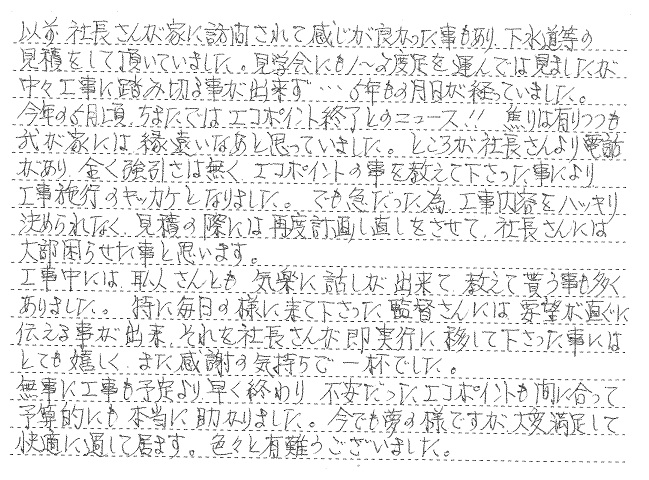 以前 社長さんが家に訪問されて感じが良かった事もあり 下水道等の
見積をして頂いていました。見学会にも1～2度足を運んでは見ましたが
中々工事に踏み切る事が出来ず…5年もの月日が経っていました。
今年の5月頃 ちまたではエコポイント終了とのニュース!! 焦りは有りつつも
我が家には縁遠いなあと思っていました。ところが社長さんより電話
があり 全く強引さは無く エコポイントの事を教えて下さった事により
工事施行のキッカケとなりました。でも急だった為 工事内容をハッキリ
決められなく 見積の際には再度計画し直しをさせて 社長さんには
大部困らせた事と思います。
工事中には 職人さんとも 気楽に話しが出来て 教えて貰う事も多く
ありました。特に毎日の様に来て下さった監督さんには 要望が直ぐに
伝える事が出来 それを社長さんが即実行に移して下さった事には
とても嬉しく また感謝の気持ちで一杯でした。
無事に工事も予定より早く終わり 不安だったエコポイントも間に合って
予算的にも本当に助かりました。今でも夢の様ですが、大変満足して
快適に過して居ます。色々と有難うございました。